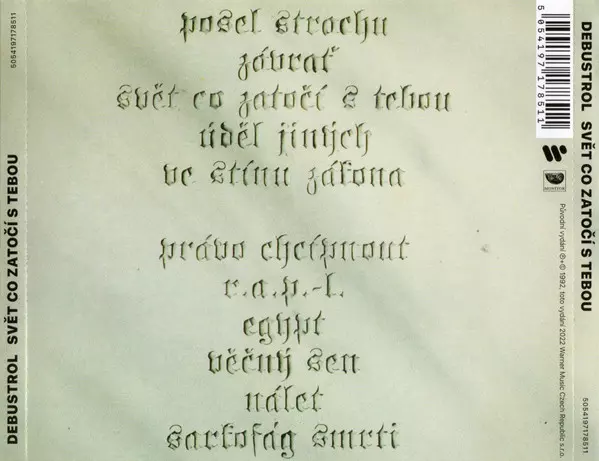 DEBUSTROL SVĚT CO ZATOČÍ S TEBOU
5054197178511
posel strachu
závrať
svět co zatočí s tebou
úděl jiných
ve stínu zákona
právo chcípnout
r.a.p.-l.
egypt
věčný sen
nálet
sarkofág smrti
5 054197 178511
MONITOR
Původní vydání ℗+© 1992, toto vydání 2022 Warner Music Czech Republic s.r.o.
DEBUSTROL SVĚT CO ZATOČÍ S TEBOU
5054197178511